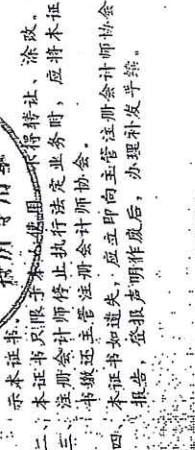 示本证书。
二、本证书只限于本人使用,不得转让、涂改。
三、注册会计师停止执行法定业务时,应将本证
书缴还主管注册会计师协会。
四、本证书如遗失,应立即向主管注册会计师协会
报告,登报声明作废后,办理补发手续。